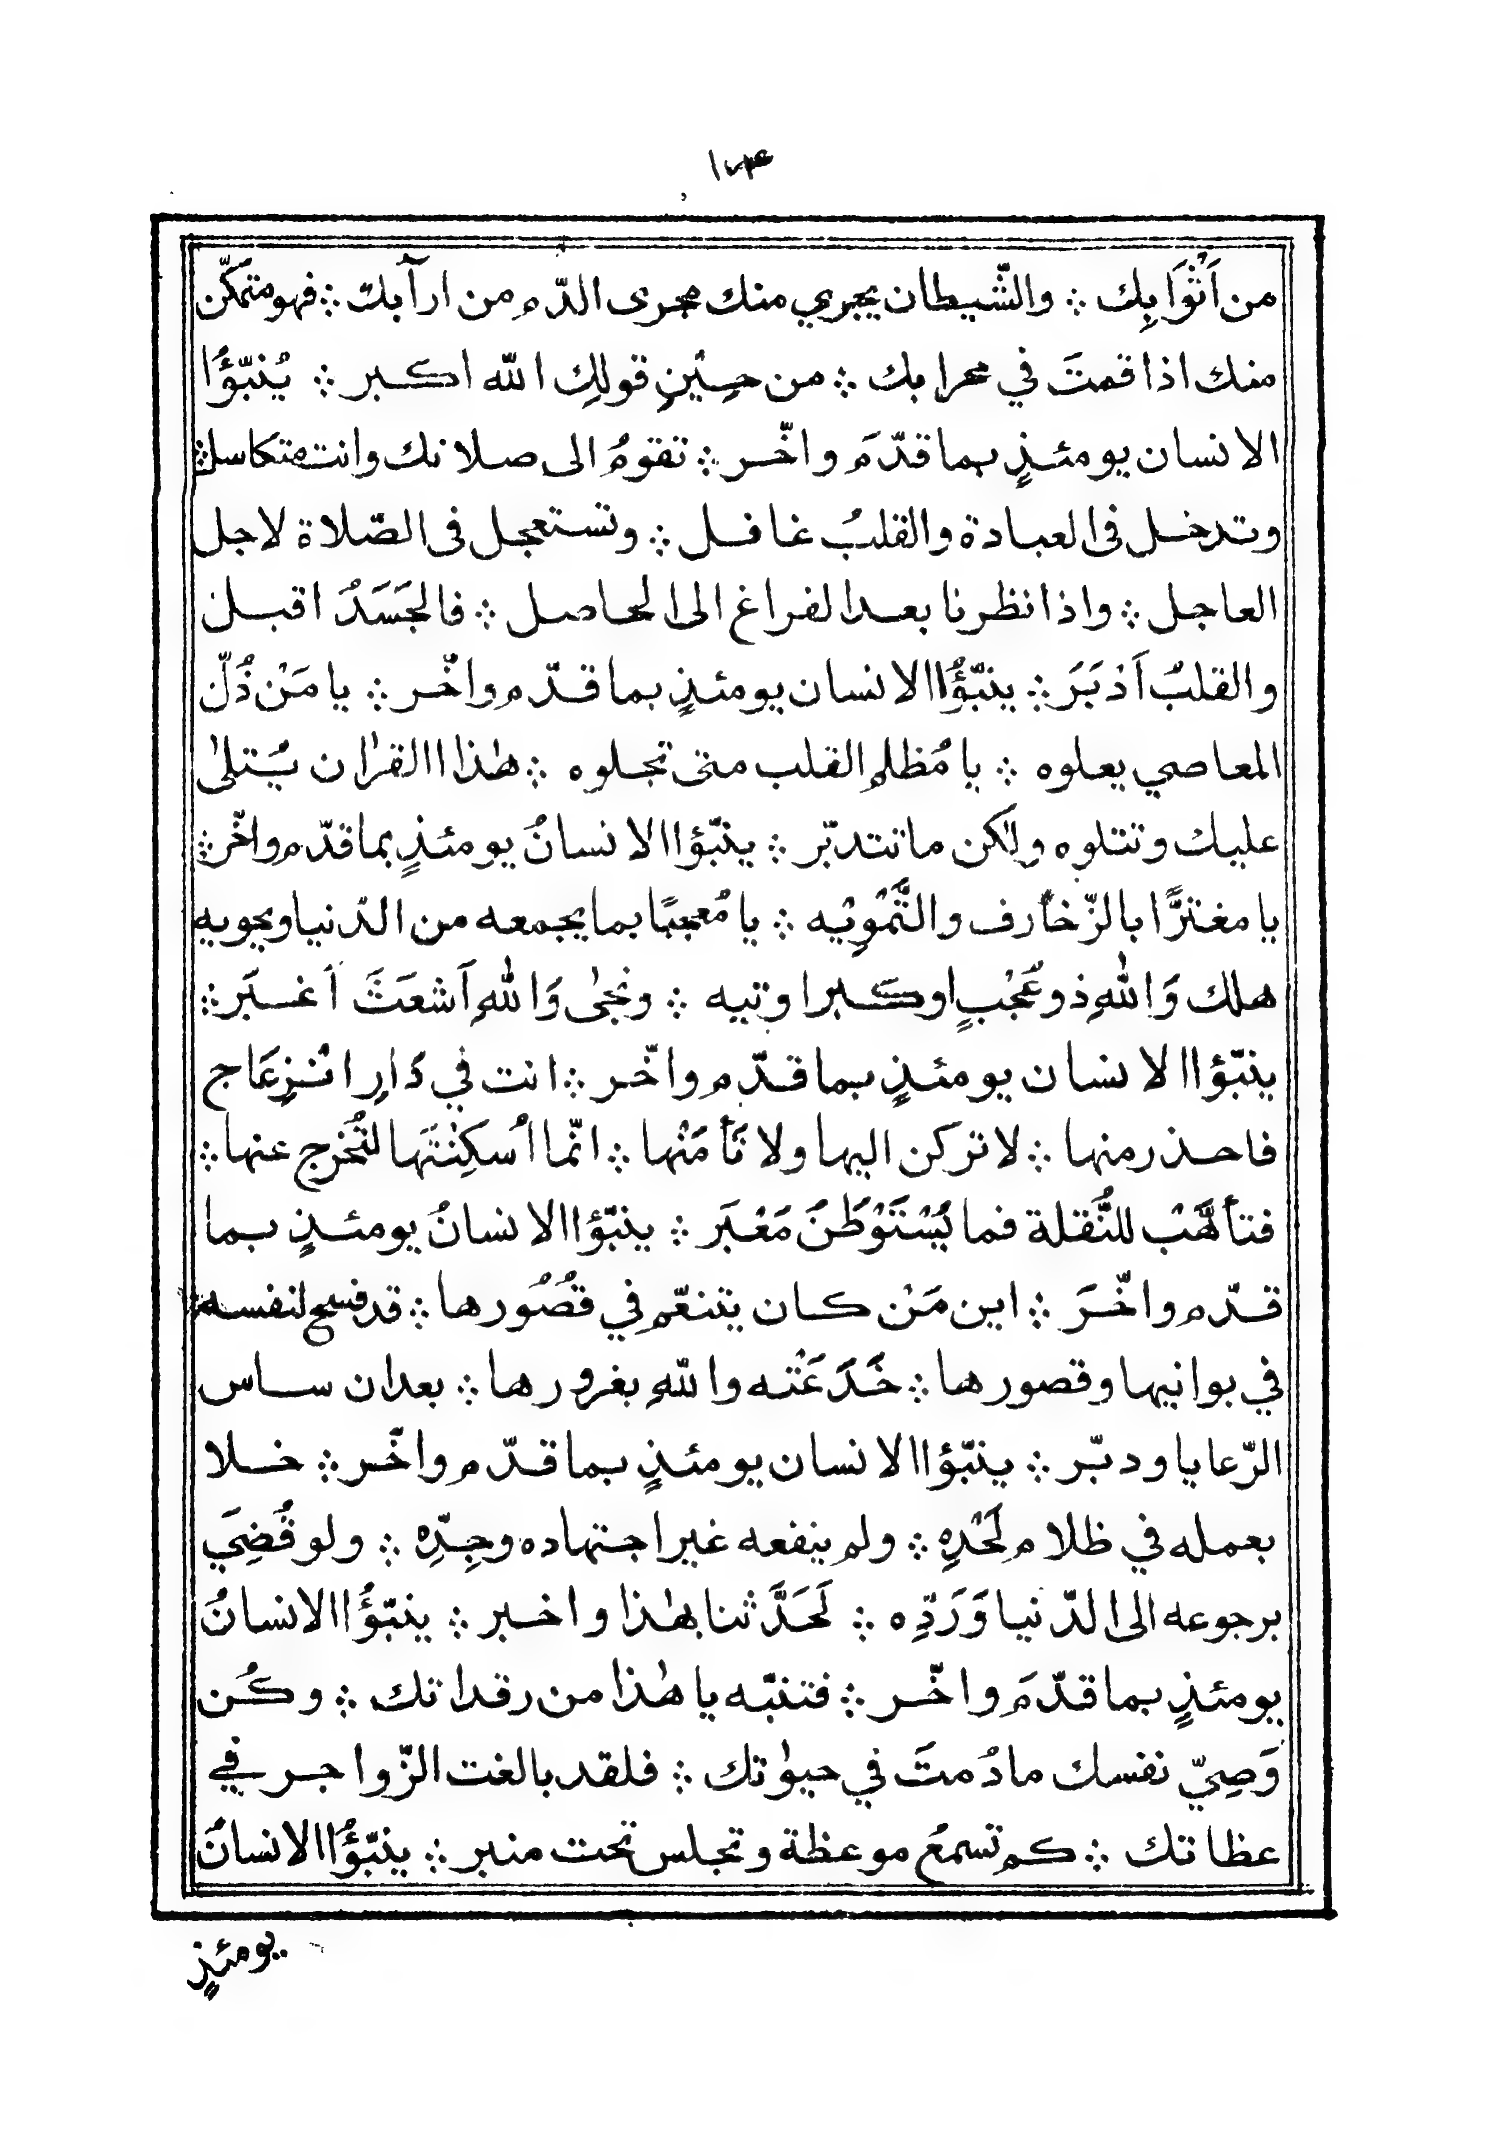 من اَثْوَابِك ⁘ والشّيطان يجري منك مجرى الدّم من ارآبك ⁘ فهو متمَكّن
منك اذا قمتَ في محرابك ⁘ من حِيْنِ قولِك الله اكبر ⁘ يُنبّؤُا
الانسان يومئذٍ بما قدّمَ واخّر ⁘ تقومُ الى صلاتك وانت متكاسل ⁘
وتدخل فى العبادة والقلبُ غافل ⁘ وتستعجل فى الصّلاة لاجل
العاجل ⁘ واذا نظرنا بعد الفراغ الى الحاصل ⁘ فالجَسَدُ اقبل
والقلبُ اَدْبَرَ ⁘ ينبّؤُا الانسان يومئذٍ بما قدّم واخّر ⁘ يا مَنْ ذُلّ
المعاصي يعلوه ⁘ يا مُظلم القلب متى تجلوه ⁘ هٰذا القراٰن يُتلىٰ
عليك وتتلوه ولٰكن ما تتدبّر ⁘ ينبّؤا الانسانُ يومئذٍ بما قدّم واخّر ⁘
يا مغترًّا بالزّخارف والتَّمْوِيْه ⁘ يا مُعجبًا بما يجمعه من الدّنيا ويحويه
هلك وَاللهِ ذو عُجْبٍ او كبر او تيه ⁘ ونجىٰ وَاللهِ اَشعَثَ اَغبَر ⁘
ينبّؤا الانسان يومئذٍ بما قدّم واخّر ⁘ انت في دَارِ انْزِعَاج
فاحذر منها ⁘ لا تركن اليها ولا تَأمَنْها ⁘ انّما اُسكِنْتَها لتُخرج عنها ⁘
فتأهَّبْ للنُّقلة فما يُسْتَوْطَنُ مَعْبَر ⁘ ينبّؤا الانسانُ يومئذٍ بما
قدّم واخّرَ ⁘ اين مَنْ كان يتنعّم في قُصُورها ⁘ قد فسح لنفسه
في بوانيها وقصورها ⁘ خَدَعَتْه واللهِ بغرورها ⁘ بعد ان ساس
الرّعايا ودبّر ⁘ ينبّؤا الانسان يومئذٍ بما قدّم واخّر ⁘ خلا
بعمله في ظلام لَحْدِهِ ⁘ ولم ينفعه غير اجتهاده وجِدِّهِ ⁘ ولو قُضِيَ
برجوعه الى الدّنيا وَرَدِّه ⁘ لَحَدَّثنا بهٰذا واخبر ⁘ ينبّؤُا الانسانُ
يومئذٍ بما قدّمَ واخّر ⁘ فتنبّه يا هٰذا من رقداتك ⁘ وكُن
وَصِيّ نفسك ما دُمتَ في حيوٰتك ⁘ فلقد بالغت الزّواجر في
عظاتك ⁘ كم تسمعُ موعظة وتجلس تحت منبر ⁘ ينبّؤُا الانسانُ
يومئذٍ